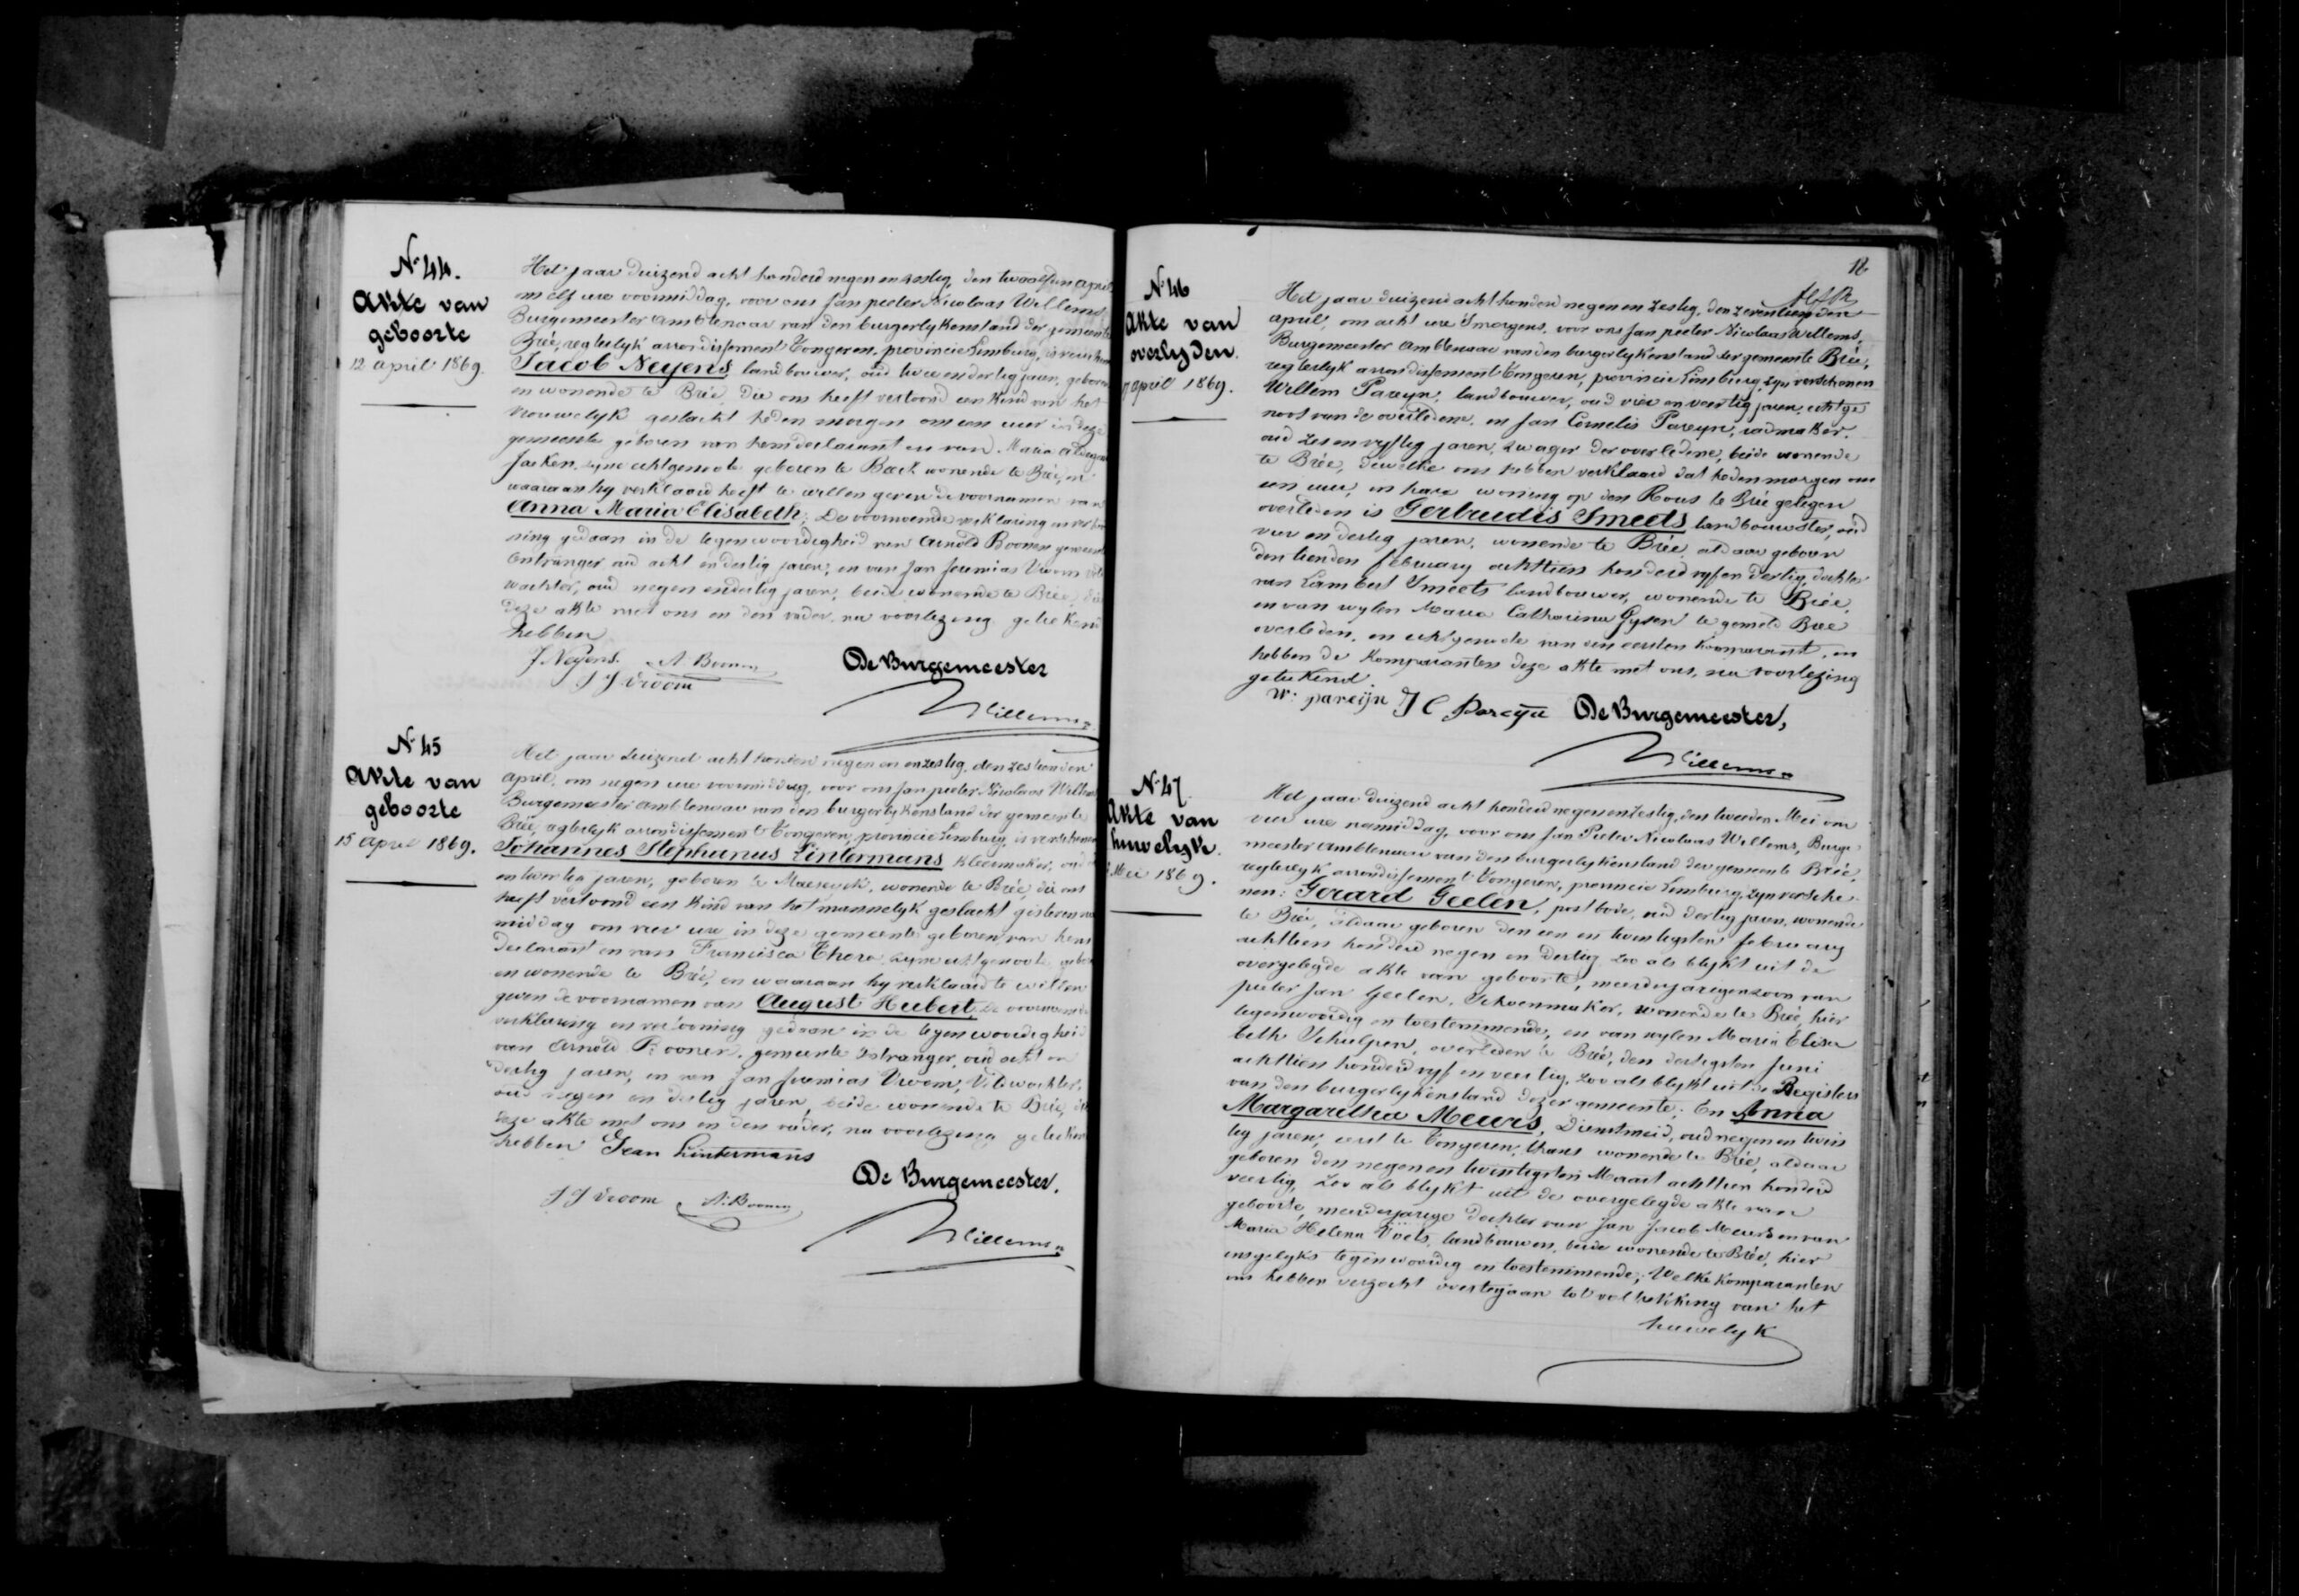 N.º 44.
Akte van
geboorte
12 april 1869.
Het jaar duizend acht honderd negen en zestig, den twaalfden april
om elf ure voormiddag, voor ons Jan pieter Nicolaas Willems,
Burgemeester Ambtenaar van den burgerlyken stand der gemeente
Brée, regterlyk arrondissement Tongeren, provincie Limburg, is verschenen
Jacob Neyens landbouwer, oud twee en dertig jaren, geboren
en wonende te Brée, die ons heeft vertoond een kind van het
vrouwelyk geslacht heden morgen om een uur in deze
gemeente geboren van hem declarant en van Maria
Jacken, zyne echtgenoote geboren te Beek wonende te Brée, en
waaraan hy verklaard heeft te willen geven de voornamen van
Anna Maria Elisabeth; De voornoemde verklaring en vertoo
ning gedaan in de tegenwoordigheid van Arnold Boonen gemeente
ontvanger, oud acht en dertig jaren, en van Jan Jeremias Vroom veld
wachter, oud negen en dertig jaren, beide wonende te Brée, die
deze akte met ons en den vader, na voorlezing geteekend
hebben
J. Neyens. A Boonen
J J Vroom
De Burgemeester
Willems
N.º 45
Akte van
geboorte
15 april 1869.
Het jaar duizend acht honderd negen en zestig, den zestienden
april, om negen ure voormiddag, voor ons Jan pieter Nicolaas Willems
Burgemeester Ambtenaar van den burgerlyken stand der gemeente
Brée, regterlyk arrondissement Tongeren, provincie Limburg, is verschenen
Johannes Stephanus Lintermans kleermaker, oud
en twintig jaren, geboren te Maeseyck, wonende te Brée, die ons
heeft vertoond een kind van het mannelyk geslacht gisteren na
middag om vier ure in deze gemeente geboren van hem
declarant en van Francisca Thera zyne echtgenoote gebo
en wonende te Brée, en waaraan hy verklaard te willen
geven de voornamen van August Hubert, De voornoemde
verklaring en vertooning gedaan in de tegenwoordigheid
van Arnold Boonen, gemeente ontvanger, oud acht en
dertig jaren, en van Jan Jeremias Vroom, Veldwachter,
oud negen en dertig jaren, beide wonende te Brée, die
deze akte met ons en den vader, na voorlezing geteekend
hebben Jean Lintermans
De Burgemeester.
J J Vroom A. Boonen
Willems
18
N.º 46
Akte van
overlyden.
april 1869.
Het jaar duizend acht honderd negen en zestig, den zeventienden
april, om acht ure 's morgens, voor ons Jan pieter Nicolaas Willems,
Burgemeester Ambtenaar van den burgerlyken stand der gemeente Brée,
regterlyk arrondissement Tongeren, provincie Limburg, zyn verschenen
Willem Pareyn, landbouwer, oud vier en veertig jaren, echtge
noot van de overledene, en Jan Cornelis Pareyn, radmaker,
oud zes en vyftig jaren, zwager der overledene, beide wonende
te Brée, dewelke ons hebben verklaard dat heden morgen om
een uur, in hare woning op den Rous te Brée gelegen
overleden is Gertrudis Smeets landbouwster, oud
vier en dertig jaren, wonende te Brée, aldaar geboren
den tienden february achttien honderd vyf en dertig, dochter
van Lambert Smeets landbouwer, wonende te Brée,
en van wylen Maria Catharina Gysen te gemeld Brée
overleden, en echtgenoote van den eersten komparant, en
hebben de komparanten deze akte met ons, na voorlezing
geteekend
W: pareijn J C Pareyn De Burgemeester,
Willems
N.º 47.
Akte van
huwelyk.
Mei 1869.
Het jaar duizend acht honderd negen en zestig, den tweeden Mei om
vier ure namiddag, voor ons Jan Pieter Nicolaas Willems, Burge
meester Ambtenaar van den burgerlyken stand der gemeente Brée,
regterlyk arrondissement Tongeren, provincie Limburg, zyn versche
nen: Gerard Geelen, postbode, oud dertig jaren, wonende
te Brée, aldaar geboren den een en twintigsten february
achttien honderd negen en dertig, zoo als blykt uit de
overgelegde akte van geboorte, meerderjarigen zoon van
pieter Jan Geelen, Schoenmaker, wonende te Brée, hier
tegenwoordig en toestemmende, en van wylen Maria Elisa
beth Schulpen, overleden te Brée, den dertigsten Juni
achttien honderd vyf en veertig, zoo als blykt uit de Registers
van den burgerlyken stand dezer gemeente; En Anna
Margaritha Meurs, Dienstmeid, oud negen en twin
tig jaren, eerst te Tongeren, thans wonende te Brée, aldaar
geboren den negen en twintigsten Maart achttien honderd
veertig, zoo als blykt uit de overgelegde akte van
geboorte, meerderjarige dochter van Jan Jacob Meurs en van
Maria Helena Voets, landbouwers, beide wonende te Brée, hier
insgelyks tegenwoordig en toestemmende; Welke komparanten
ons hebben verzocht overtegaan tot voltrekking van het
huwelyk